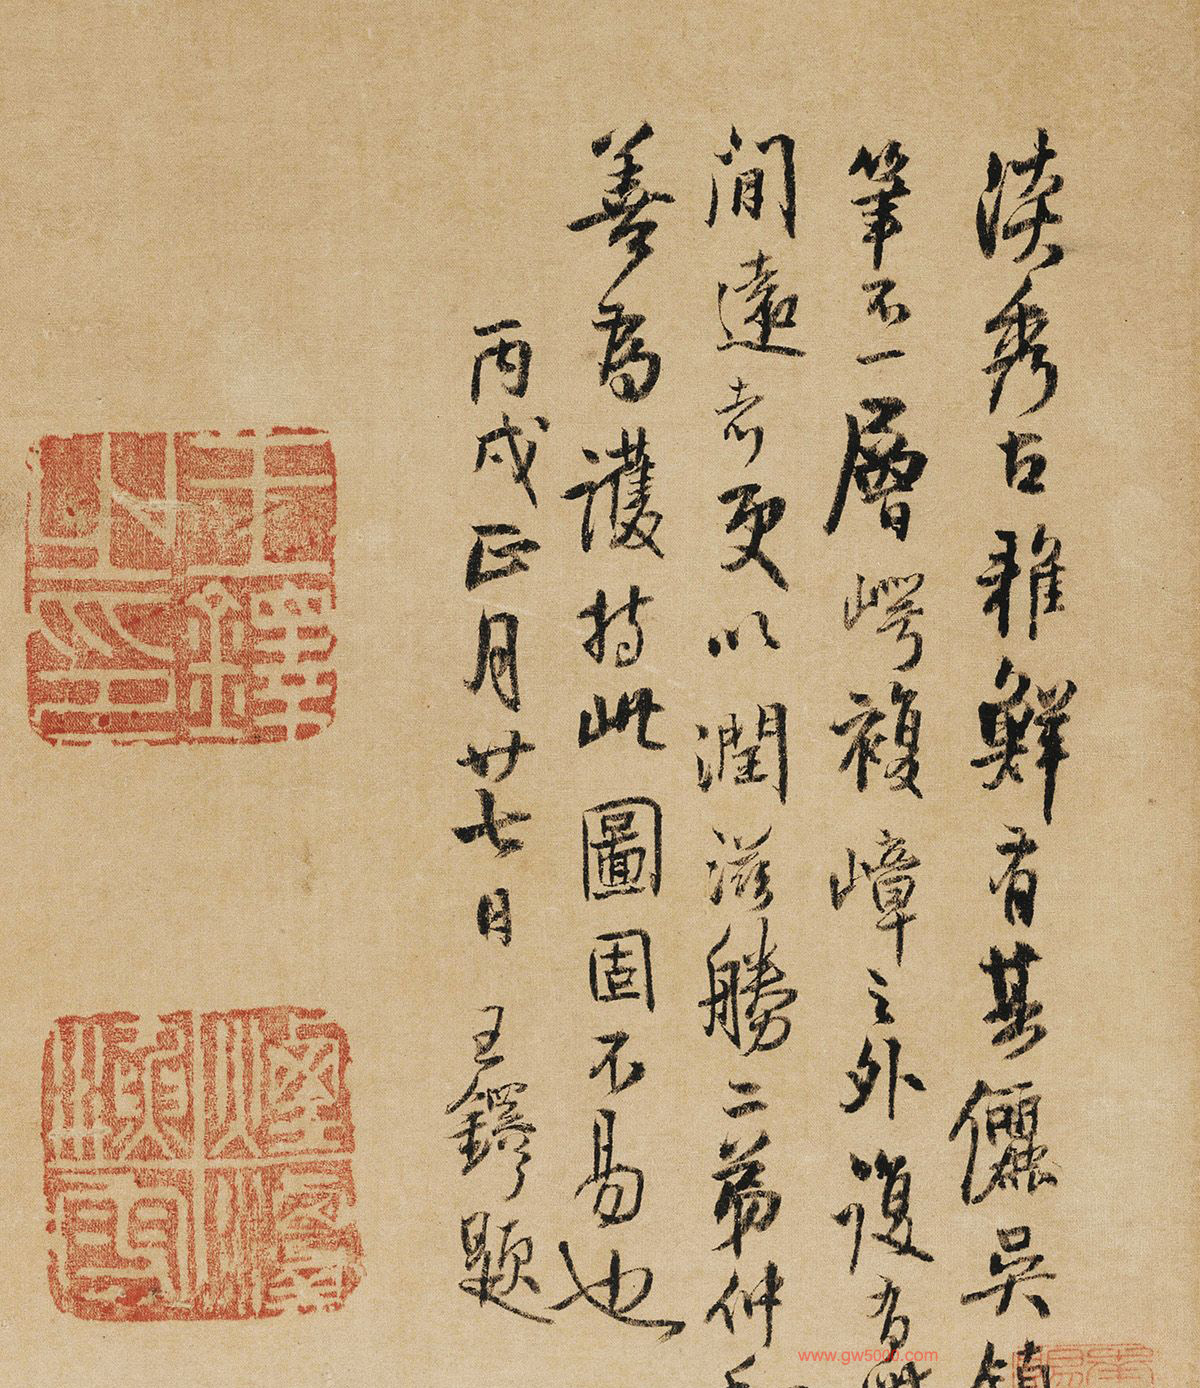 淡秀古雅鮮有其儷吳鎮
筆不一層崿複嶂之外復有
間遠者更以潤滋勝二弟仲和
善為護持此圖固不易也
丙戌正月廿七日 王鐸題
王鐸之印
www.gw5000.com